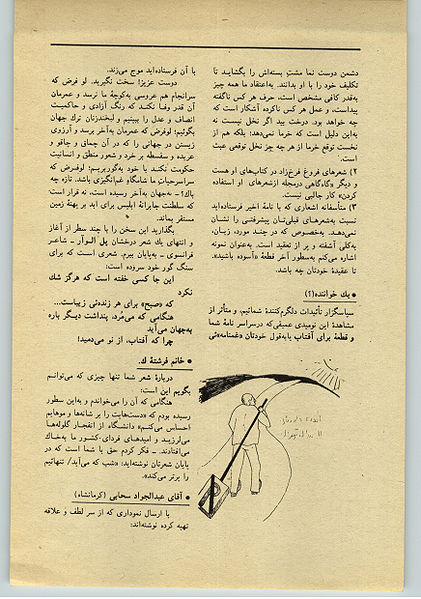 دشمن دوست نما مشتِ بسته‌اش را بگشاید تا
تکلیف خود را با او بدانند. به‌اعتقاد ما همه چیز
به‌قدر کافی مشخص است. حرف هر کس ناگفته
پیداست، و عمل هر کس ناکرده آشکار است که
چه خواهد بود. درخت بید اگر نخل نیست نه
به‌این دلیل است که خرما نمی‌دهد؛ بلکه هم از
نخست توقع خرما از هر چه جز نخل توقعی عبث
است.
۲) شعرهای فروغ فرخ‌زاد در کتاب‌های او هست
و دیگر «گاه‌گاهی درمجله ازشعرهای او استفاده
کردن» کار جالبی نیست.
۳) متأسفانه اشعاری که با نامهٔ اخیر فرستاده‌اید
نسبت به‌شعرهای قبلی‌تان پیشرفتی را نشان
نمی‌دهد. به‌خصوص که در چند مورد، زبان،
به‌کلی آشفته و پر از تعقید است. به‌عنوان نمونه
اشاره می‌کنم به‌سطور آخر قطعهٔ «آسوده باشید».
تا عقیدهٔ خودتان چه باشد.
• یك خواننده(؟)
سپاسگزار تأئیدات دلگرم‌کنندهٔ شمائیم، و متأثر از
مشاهدهٔ این نومیدی عمیقی که درسراسر نامهٔ شما
و قطعهٔ برای آفتاب یابه‌قول خودتان «غمنامه»ئی
با آن فرستاده‌اید موج می‌زند.
دوست عزیز! سخت نگیرید. لو فرض که
سرانجام هم عروسی به‌کوچهٔ ما نرسد و عمرمان
آن قدر وفا نکند که رنگ آزادی و حاکمیت
انصاف و عدل را ببینیم و لبخندزنان ترك جهان
بگوئیم؛ لوفرض که عمرمان به‌آخر برسد و آرزوی
زیستن در جهانی را که در آن چماق و چاقو و
عربده و سفسطه بر خرد و شعور منطق و انسانیت
حکومت نکند با خود به‌گور بریم؛ لوفرض که
سراسرحیات ما شامگاه غم‌انگیزی باشد. تازه چه
باك؟ ـ نه‌جهان به‌آخر رسیده است، نه قرار است
که سلطنت جابرانهٔ ابلیس برای ابد بر پهنهٔ زمین
مستقر بماند.
بگذارید این سخن را با چند سطر از آغاز
و انتهای یك شعر درخشان پل الوآر ـ شاعر
فرانسوی ـ به‌پایان بریم. شعری است که برای
سنگ گور خود سروده است:
این جا کسی خفته است که هرگز شك
نکرد
که «صبح» برای هر زنده‌ئی زیباست...
هنگامی که می‌مُرد، پنداشت دیگر باره
به‌جهان می‌آید
چرا که آفتاب، از نو می‌دمید!
• خانم فرشتهٔ ك.
دربارهٔ شعر شما تنها چیزی که می‌توانیم
بگویم این است:
هنگامی که آن را می‌خواندم و به‌این سطور
رسیده بودم که «دست‌هایت را بر شانه‌ها و موهایم
احساس می‌کنم» دانشگاه از انفجار گلوله‌ها
می‌لرزید و امیدهای فردای‌کشور ما به‌خاك
می‌افتادند. ـ فکر کردم حق با شما است که در
پایان شعرتان نوشته‌اید: «شب که می‌آید/ تنهائیم
را برتر می‌کند».
• آقای عبدالجواد سحابی (کرمانشاه)
با ارسال نموداری که از سر لطف و علاقه
تهیه کرده نوشته‌اند: